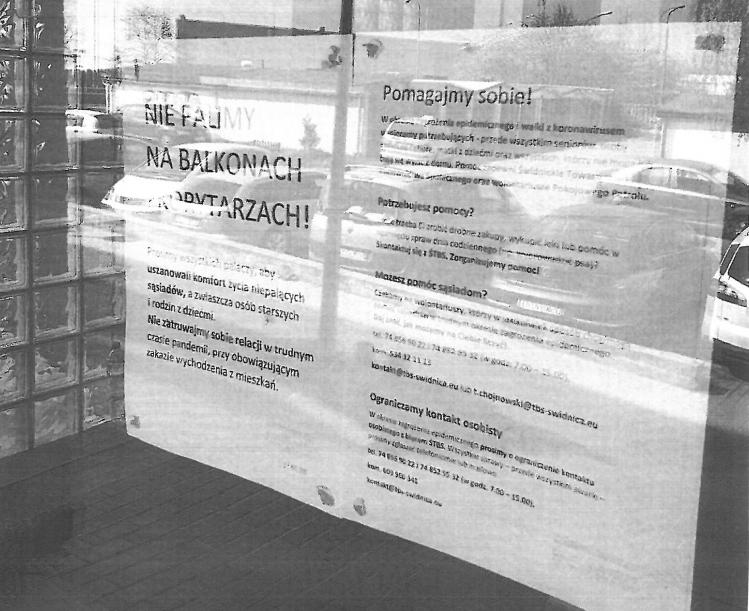 NIE PALIMY
NA BALKONACH
I KORYTARZACH!
Prosimy wszystkich palaczy, aby
uszanowali komfort życia niepalących
sąsiadów, a zwłaszcza osób starszych
i rodzin z dziećmi.
Nie zatruwajmy sobie relacji w trudnym
czasie pandemii, przy obowiązującym
zakazie wychodzenia z mieszkań.
Pomagajmy sobie!
W zagrożenia epidemicznego i walki z koronawirusem
wspieramy potrzebujących - przede wszystkim seniorów,
matki z dziećmi oraz
z domu. Pomoc
oraz Pokojowego Patrolu.
Potrzebujesz pomocy?
Ci zrobić drobne zakupy, wykupić leki lub pomóc w
spraw dnia codziennego psa)?
Skontaktuj się z ŚTBS. Zorganizujemy pomoc!
Możesz pomóc sąsiadom?
Czekamy na wolontariuszy, którzy w
trudnym okresie zagrożenia epidemicznego
Daj znać, jak możemy na Ciebie liczyć.
tel. 74 856 90 22 / 74 852 95 32 (w godz. 7.00 – 15.00),
kom. 534 32 11 13
kontakt@tbs-swidnica.eu lub t.chojnowski@tbs-swidnica.eu
Ograniczamy kontakt osobisty
W okresie zagrożenia epidemicznego prosimy o ograniczenie kontaktu
osobistego z biurem ŚTBS. Wszystkie sprawy – przede wszystkim awarie –
prosimy zgłaszać telefonicznie lub mailowo
tel. 74 856 90 22 / 74 852 95 32 (w godz. 7.00 – 15.00),
kom. 603 968 341
kontakt@tbs-swidnica.eu